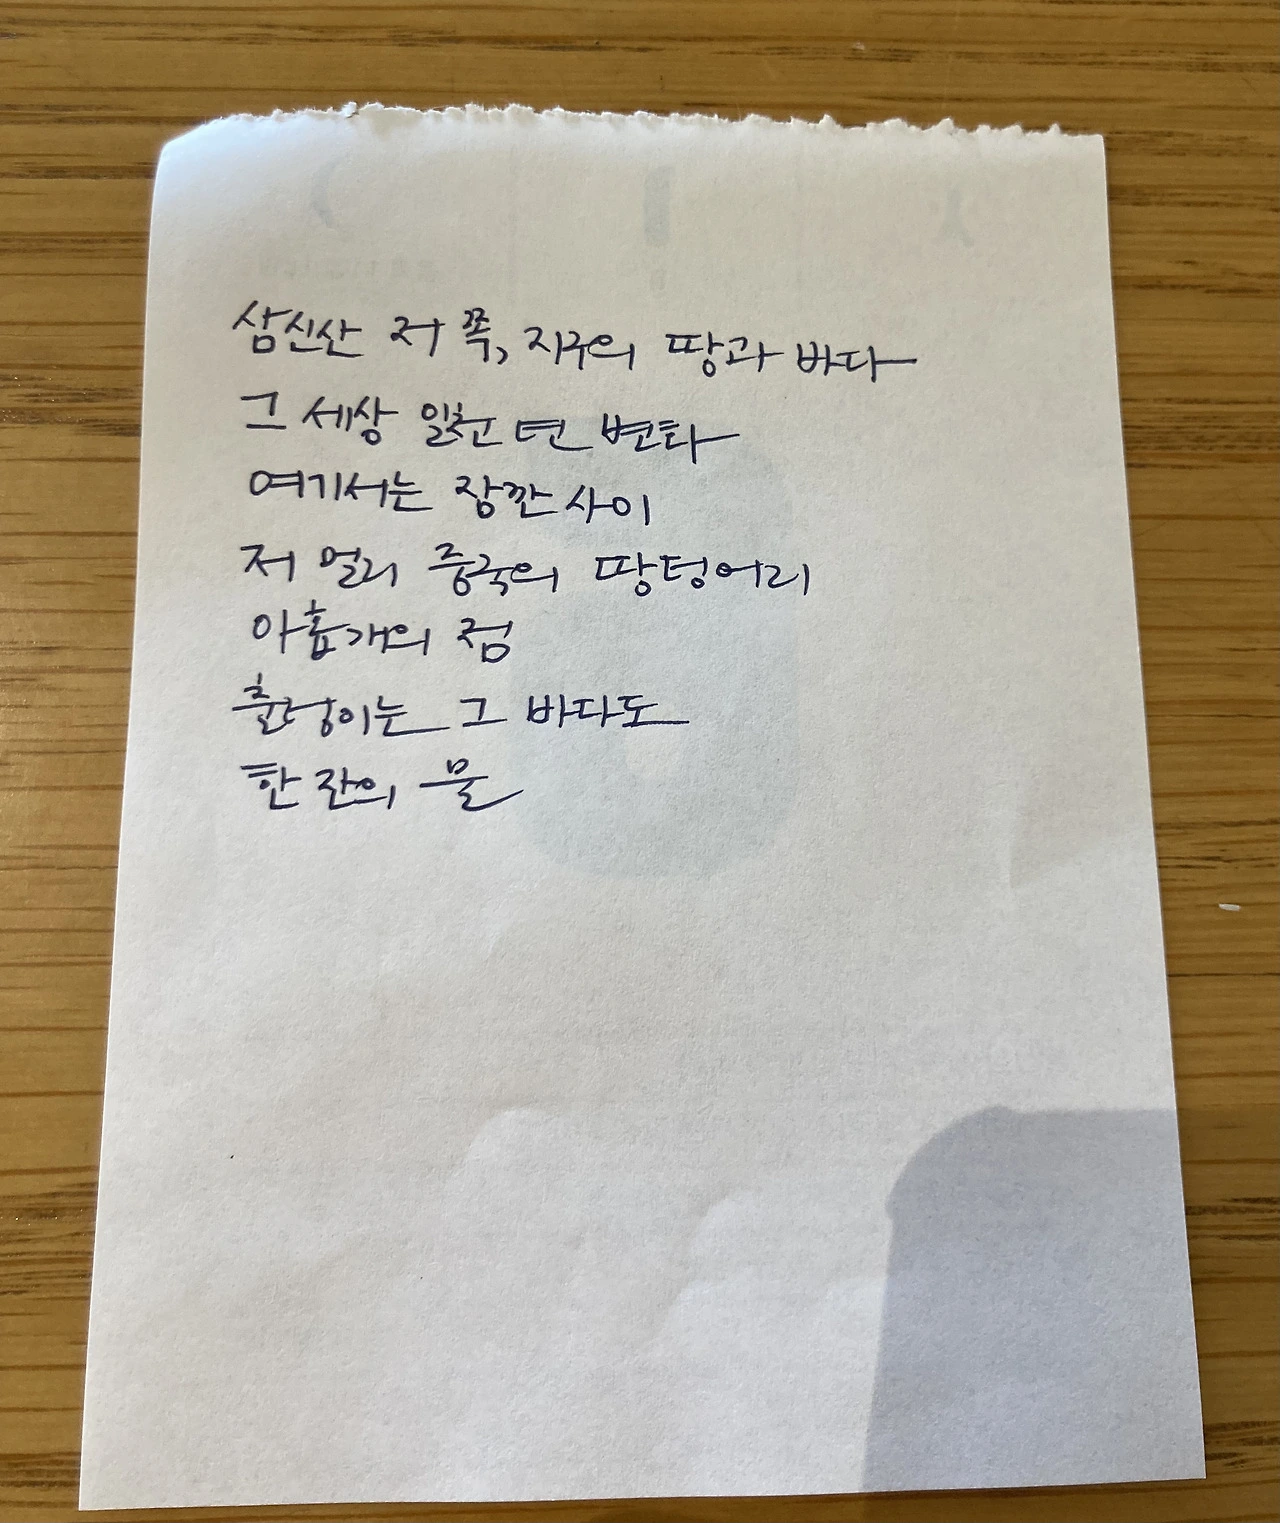 삼신산 저 쪽, 지구의 땅과 바다
그 세상 일천 년 변화
여기서는 잠깐 사이
저 멀리 중국의 땅덩어리
아홉개의 점
출렁이는 그 바다도
한 잔의 물